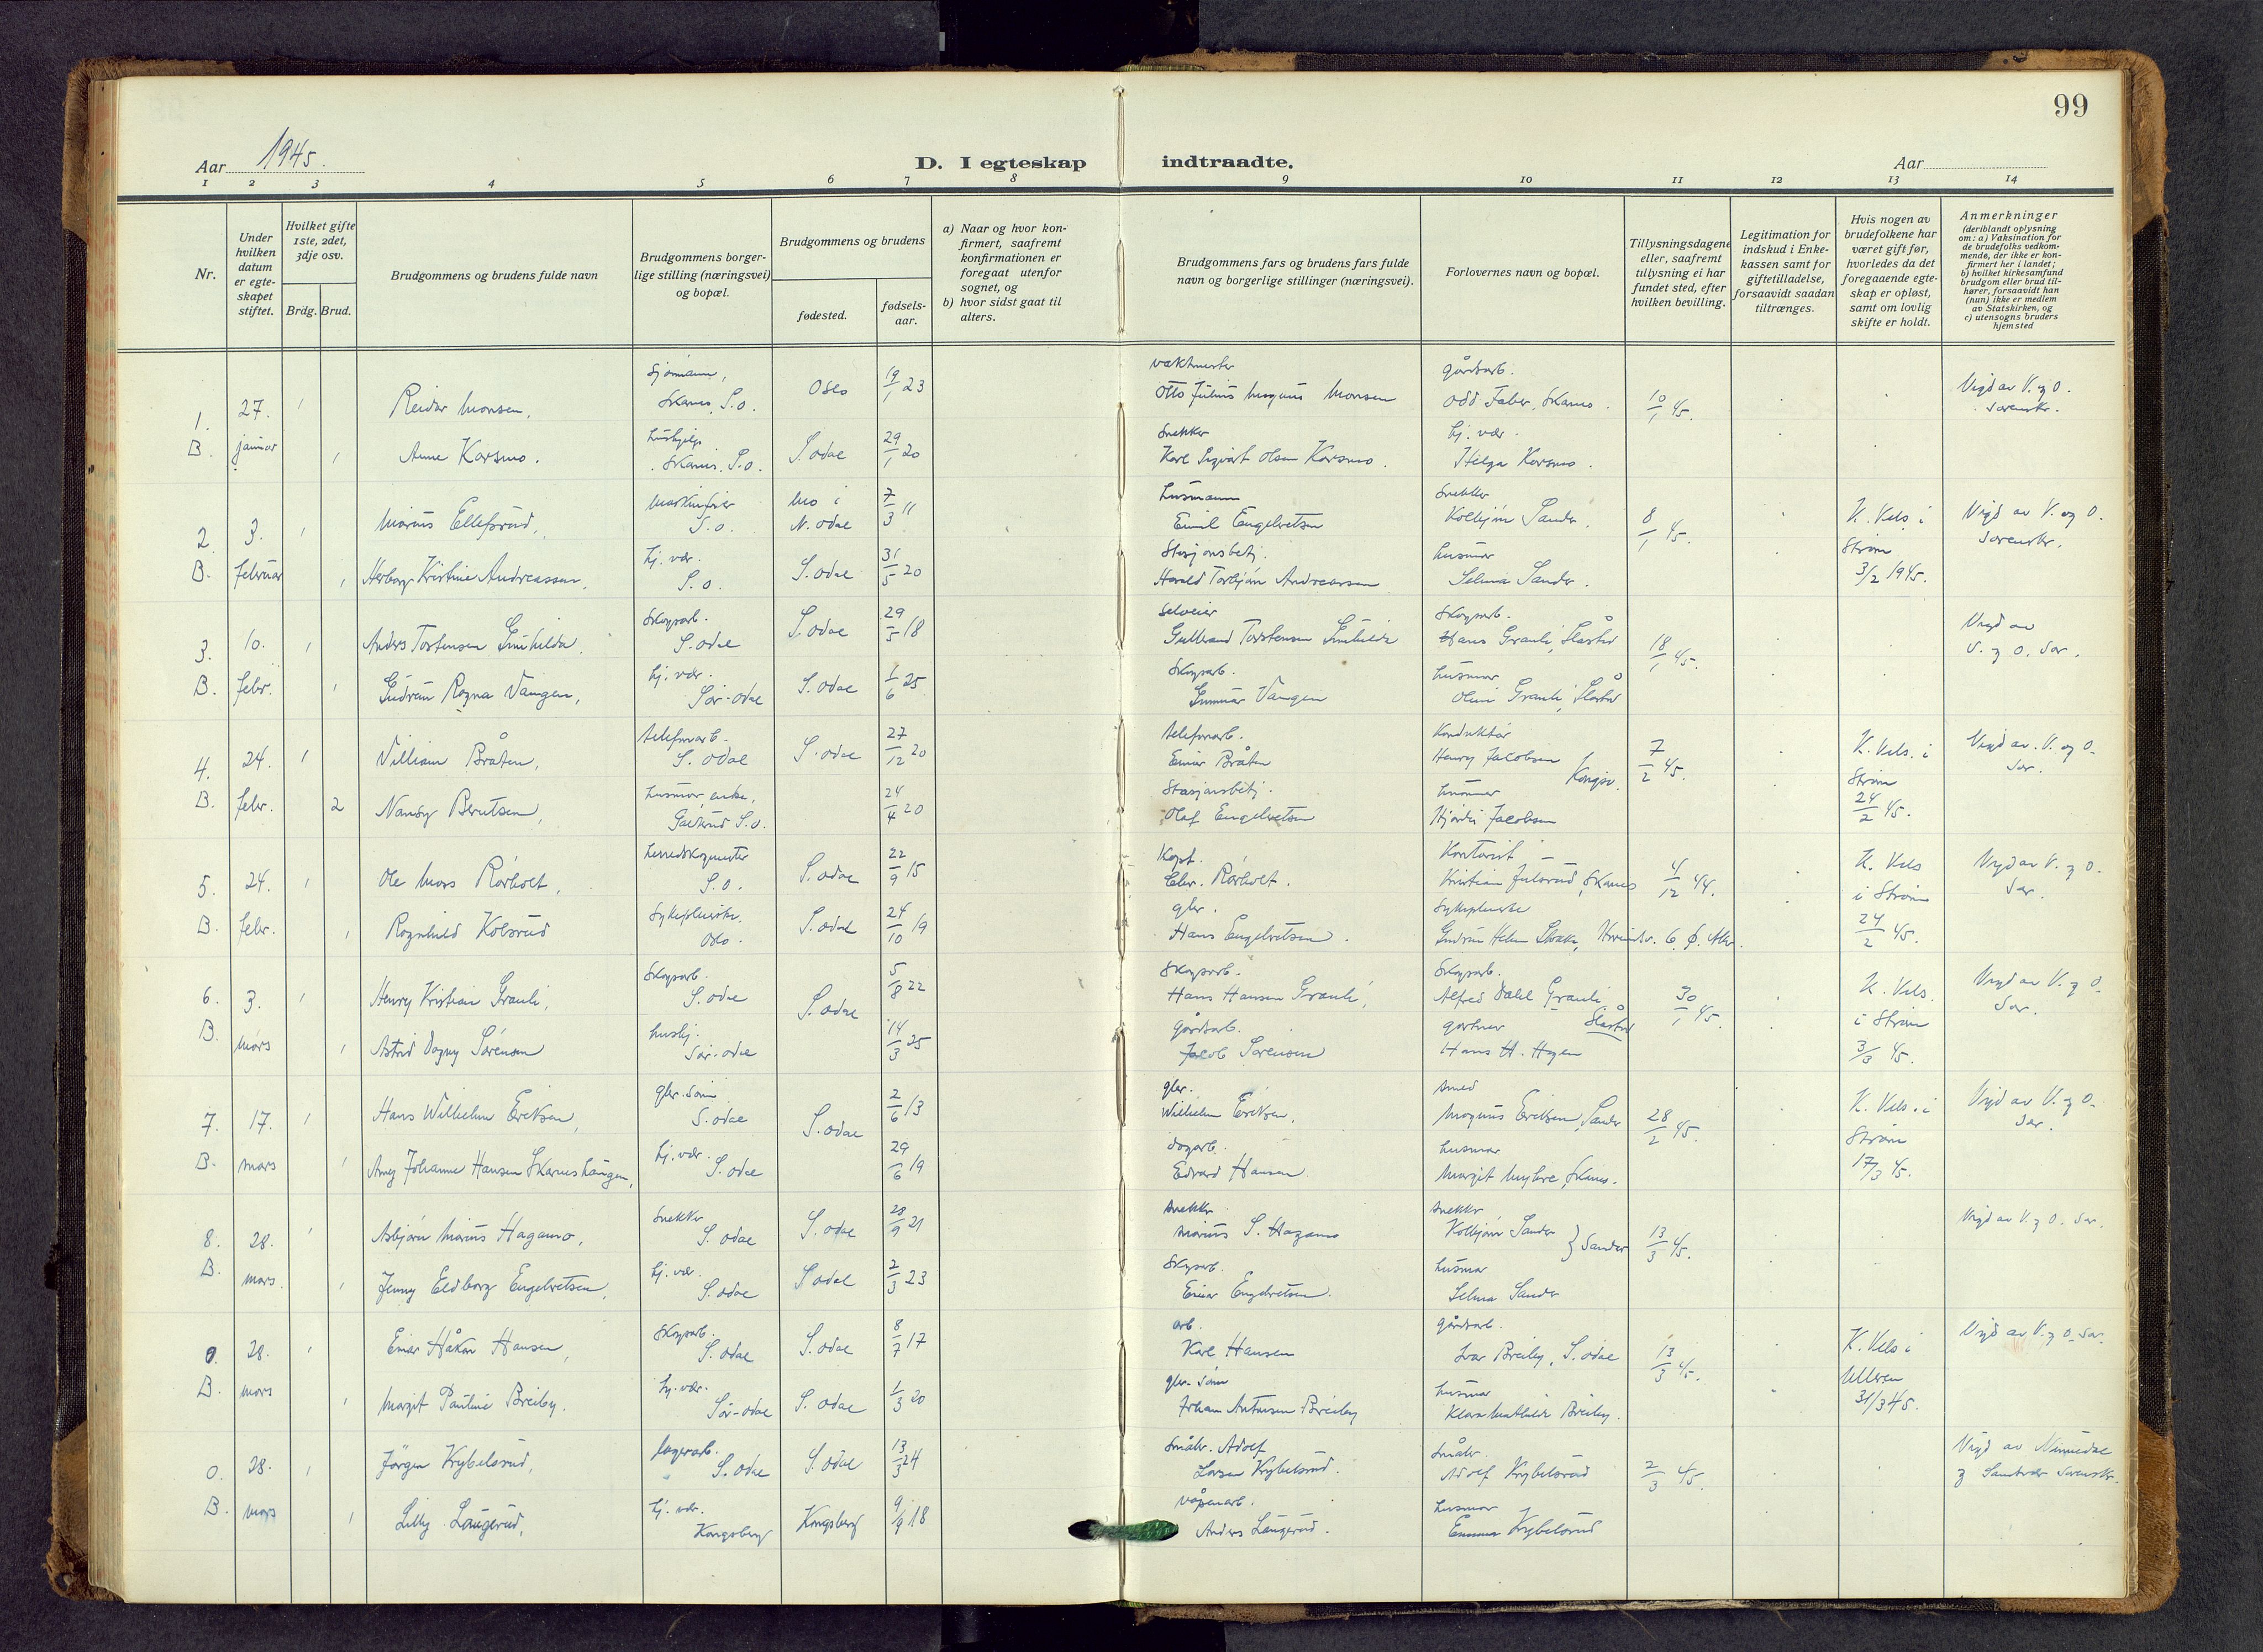 99
Aar 1945.
D. I egteskap indtraadte.
Aar
1 2 3 4 5 6 7 8 9 10 11 12 13 14
Nr.
Under hvilken datum er egteskapet stiftet.
Hvilket gifte 1ste, 2det, 3dje osv.
Brdg. Brud.
Brudgommens og brudens fulde navn
Brudgommens borgerlige stilling (næringsvei) og bopæl.
Brudgommens og brudens
fødested.
fødselsaar.
a) Naar og hvor konfirmert, saafremt konfirmationen er foregaat utenfor sognet, og
b) hvor sidst gaat til alters.
Brudgommens fars og brudens fars fulde navn og borgerlige stillinger (næringsvei).
Forlovernes navn og bopæl.
Tillysningsdagene eller, saafremt tillysning ei har fundet sted, efter hvilken bevilling.
Legitimation for indskud i Enkekassen samt for giftetilladelse, forsaavidt saadan tiltrænges.
Hvis nogen av brudefolkene har været gift før, hvorledes da det foregaaende egteskap er opløst, samt om lovlig skifte er holdt.
Anmerkninger (deriblandt oplysning om: a) Vaksination for de brudefolks vedkommende, der ikke er konfirmert her i landet; b) hvilket kirkesamfund brudgom eller brud tilhører, forsaavidt han (hun) ikke er medlem av Statskirken, og c) utensogns bruders hjemsted
1. 27. 1 Reidar Monsen, sjømann, Skarnes, S.o. Oslo 19/1 23 vaktmester Otto Julius Magnus Monsen gårdsarb. Odd Faber, Skarnes. 10/1 45. Vigd av V. og O. Sorenskr.
B. januar 1 Anne Korsmo. hushjelp Skarnes. S.o. S. odal 29/1 20 Snekker Karl Sigvart Olsen Korsmo. hj. vær. Helga Korsmo.
2 3. 1 Marius Ellefsrud, S.o. Mo i N. odal 7/3 11 husmann Emil Engebretsen Snekker Kolbjørn Sander. 8/1 45. K. Vels i Strøm 3/2 1945. Vigd av V. og O. Sorenskr.
B. februar 1 Herborg Kristine Andreassen, hj. vær. S.o. S. odal 31/5 20 Stasjonsbetj. Harald Torbjørn Andreassen husmor Selma Sander.
3. 10. 1 Anders Torstensen Gunhildr. Skogsarb. S. odal S. odal 29/5 18 Selveier Gulbrand Torstensen Skogsarb. Hans Granli, Slåstad 18/1 45. Vigd av V. og O. Sor.
B. febr. 1 Gudrun Ragna Vangen, hj. vær. Sør-odal S. odal 1/6 25 Skogsarb. Gunnar Vangen husmor Granli, Slåstad
4. 24. 1 Villiam Bråten, telefonarb. S. odal S. odal 27/12 20 telefonarb. Einar Bråten Konduktør Henry Jacobsen Kongsv. 7/2 45. K. Vels. i Strøm 24/2 45. Vigd av. V. og O. Sor.
B. febr. 2 Nansy Berntsen, husmor, enke, S.o. 24/4 20 Stasjonsbetj. Olaf Engebretsen husmor Hjørdis Jacobsen
5. 24. 1 Ole Mars Rørholt, herredskogmester S.o. S. odal 22/9 15 Kapt. Rørholt. Kontorist Kristian Julsrud, Skarnes 4/12 44. K. Vels i Strøm 24/2 45. Vigd av V. og O. Sor.
B. febr. 1 Ragnhild Kolsrud Sykepleierske. Oslo. S. odal 24/10 19 gbr. Hans Engebretsen. Sykepleierske Gudrun
6. 3. 1 Henry Kristian Granli, Skogsarb. S. odal S. odal 5/8 22 Skogsarb. Hans Hansen Granli, Skogsarb. Alfred Dahl Granli Slåstad 30/1 45. K. Vels. i Strøm 3/3 45. Vigd av V. og O. Sor.
B. mars 1 Astrid Dagny Sørensen hushj. Sør-odal 14/3 25 gårdsarb. Jacob Sørensen gartner Hans H. Hagen
7. 17. 1 Hans Wilhelm Eriksen, gbr. sønn S. odal S. odal 2/6 13 gbr. Wilhelm Eriksen, smed Magnus Eriksen, Sander 28/2 45. K. Vels. i Strøm 17/3 45. Vigd av V. og O. Sor.
B. mars 1 Amy Johanne Hansen Skarneshaugen, hj. vær. S. odal 29/6 19 dagarb. Edvard Hansen husmor Margit Myhre, Skarnes.
8. 28. 1 Asbjørn Marius Hagamo, Snekker S. odal S. odal 28/9 21 Snekker Marius S. Hagamo Snekker Kolbjørn Sander } Sander 13/3 45. Vigd av V. og O. Sor.
B. mars. 1 Jenny Eldborg Engebretsen, hj. vær. S. odal S. odal 2/3 23 Skogsarb. Einar Engebretsen. husmor Selma Sander
9. 28. 1 Einar Håkon Hansen, Skogsarb. S. odal S. odal 8/7 17 arb. Karl Hansen gårdsarb. Ivar Breiby, S. odal 13/3 45. K. Vels i Ullern 31/3 45. Vigd av V. og O. Sor.
B. mars 1 Margit Pauline Breiby. hj. vær. Sør-odal S. odal 1/3 20 gbr. sønn Johan Antonsen Breiby husmor Klara Mathilde Breiby.
0. 28. 1 Jørgen Krybelsrud, lagerarb. S. odal S. odal 13/3 24 Småbr. Adolf Larsen Krybelsrud. Småbr. Adolf Krybelsrud 2/3 45. Vigd av Numedal og Sandsvær Sorenskr.
B. mars 1 Lilly Laugerud, hj. vær. Kongsberg Kongsberg 9/9 18 våpenarb. Anders Laugerud. husmor Emma Krybelsrud